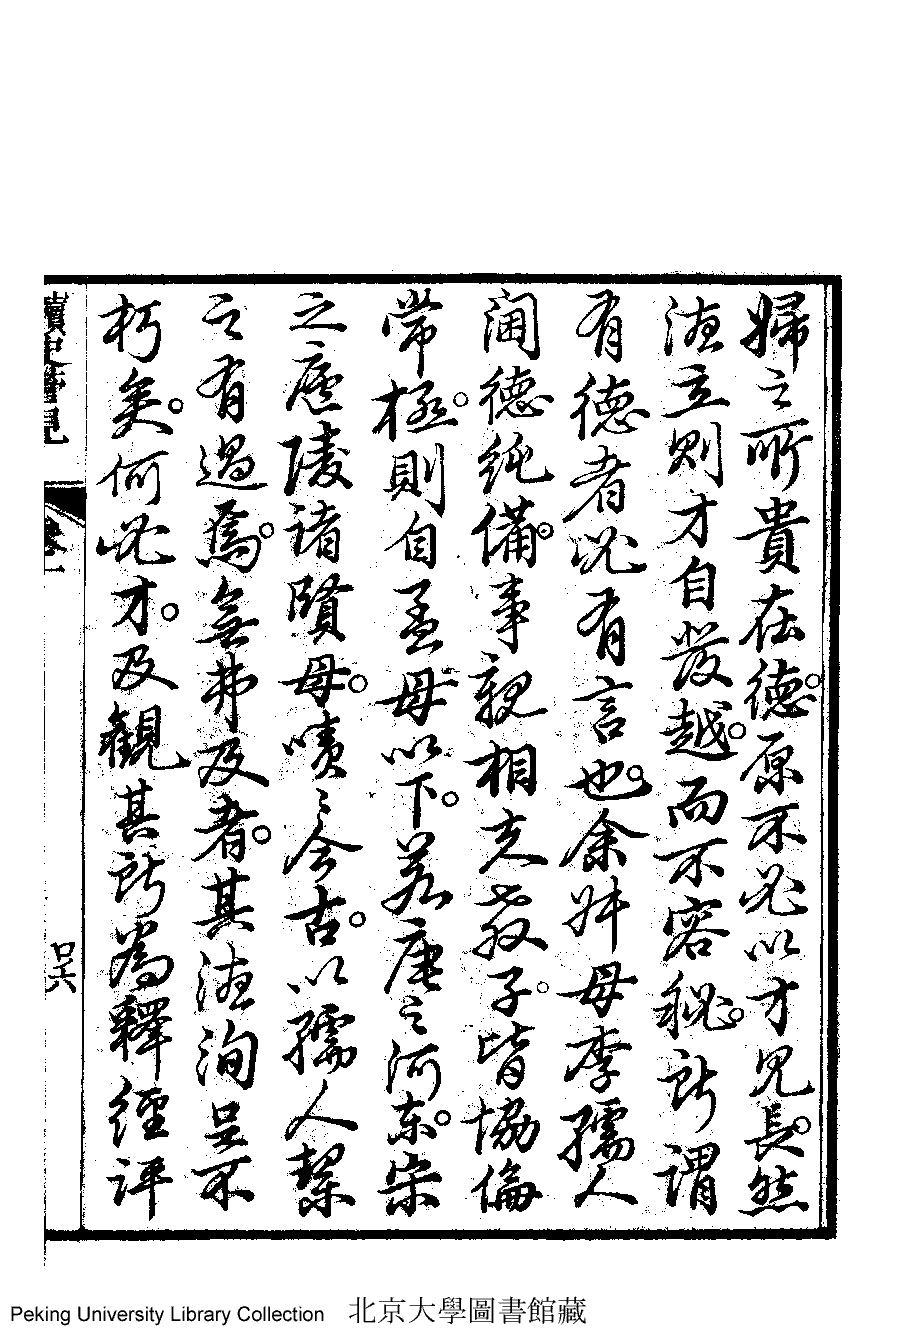 婦之所貴在德。原不必以才見長。然
德立則才自發越。而不容秘。所謂
有德者必有言也。余姊母李孺人
閫德純備。事親相夫教子。皆協倫
常極。則自孟母以下。若唐之河東。宋
之廬陵諸賢母。嘖〻今古。以孺人絜
之有過焉。無弗及者。其德洵足不
朽矣。何必才。及觀其所為釋經評
讀史管見
卷一
吴
Peking University Library Collection 北京大學圖書館藏